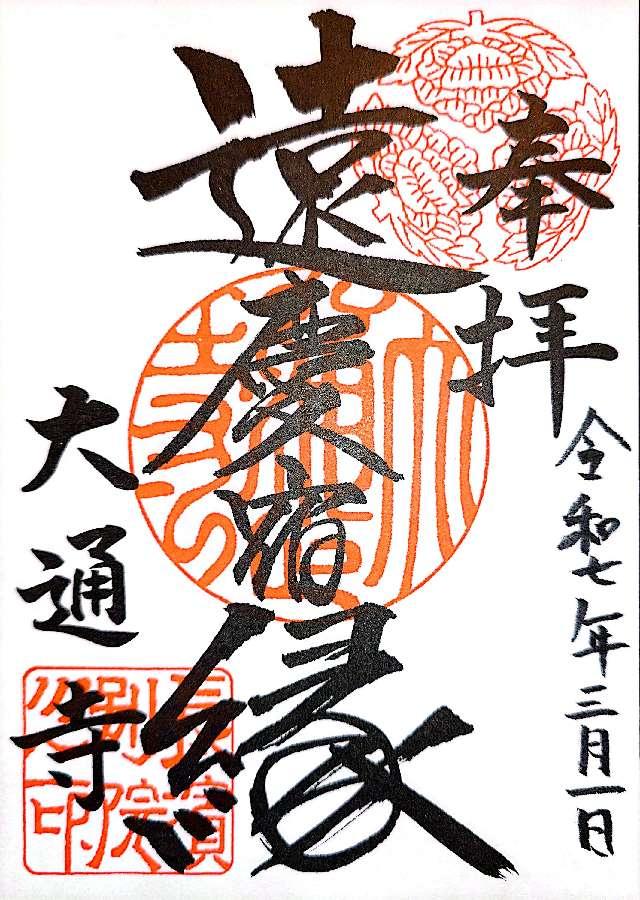 奉拝
令和七年三月一日
遠慶宿縁
大通寺
長濱別院印